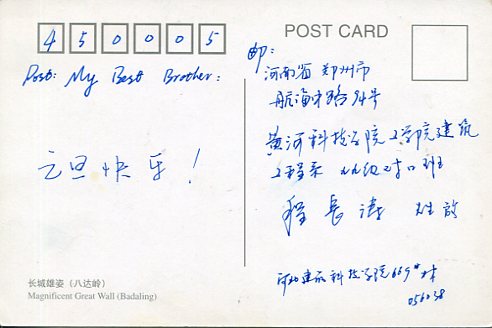 450005
POST CARD
Post: My Best Brother:
元旦快乐!
邮:
河南省 郑州市
航海中路94号
黄河科技学院工学院建筑
工程系
班
程长涛 收
河北建筑科技学院669#
056038
长城雄姿(八达岭)
Magnificent Great Wall (Badaling)